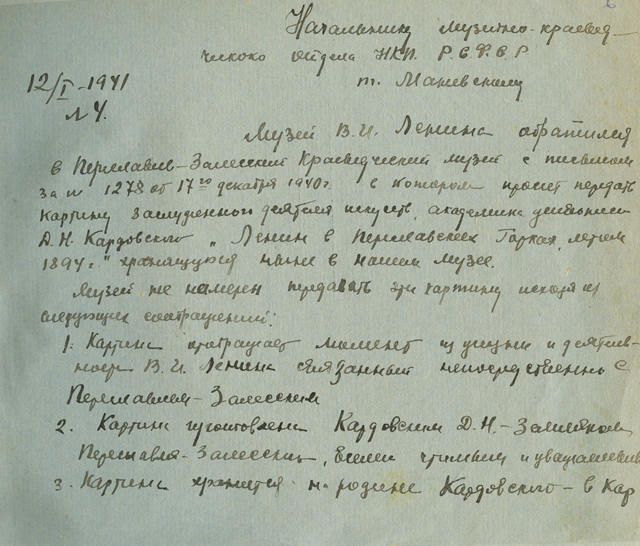 Начальнику музейно-краевед-
ческого отдела НКП. Р.С.Ф.С.Р
т. Маневскому
12/I-1941
№ 4.
Музей В.И. Ленина обратился
в Переславль-Залесский Краеведческий музей с письмом
за № 1278 от 17го декабря 1940г. в котором просит передать
картину заслуженного деятеля искусств, академика живописи
Д.Н. Кардовского „Ленин в Переславских Горках летом
1894 г." хранящуюся ныне в нашем музее.
Музей не намерен передавать эту картину исходя из
следующих соображений:
1. Картина отображает момент из жизни и деятель-
ности В.И. Ленина связанный непосредственно с
Переславлем-Залесским
2. Картина изготовлена Кардовским Д.Н. - Земляком
Переславля-Залесского, чтимым и уважаемым
3. Картина хранится на родине Кардовского - в Кар